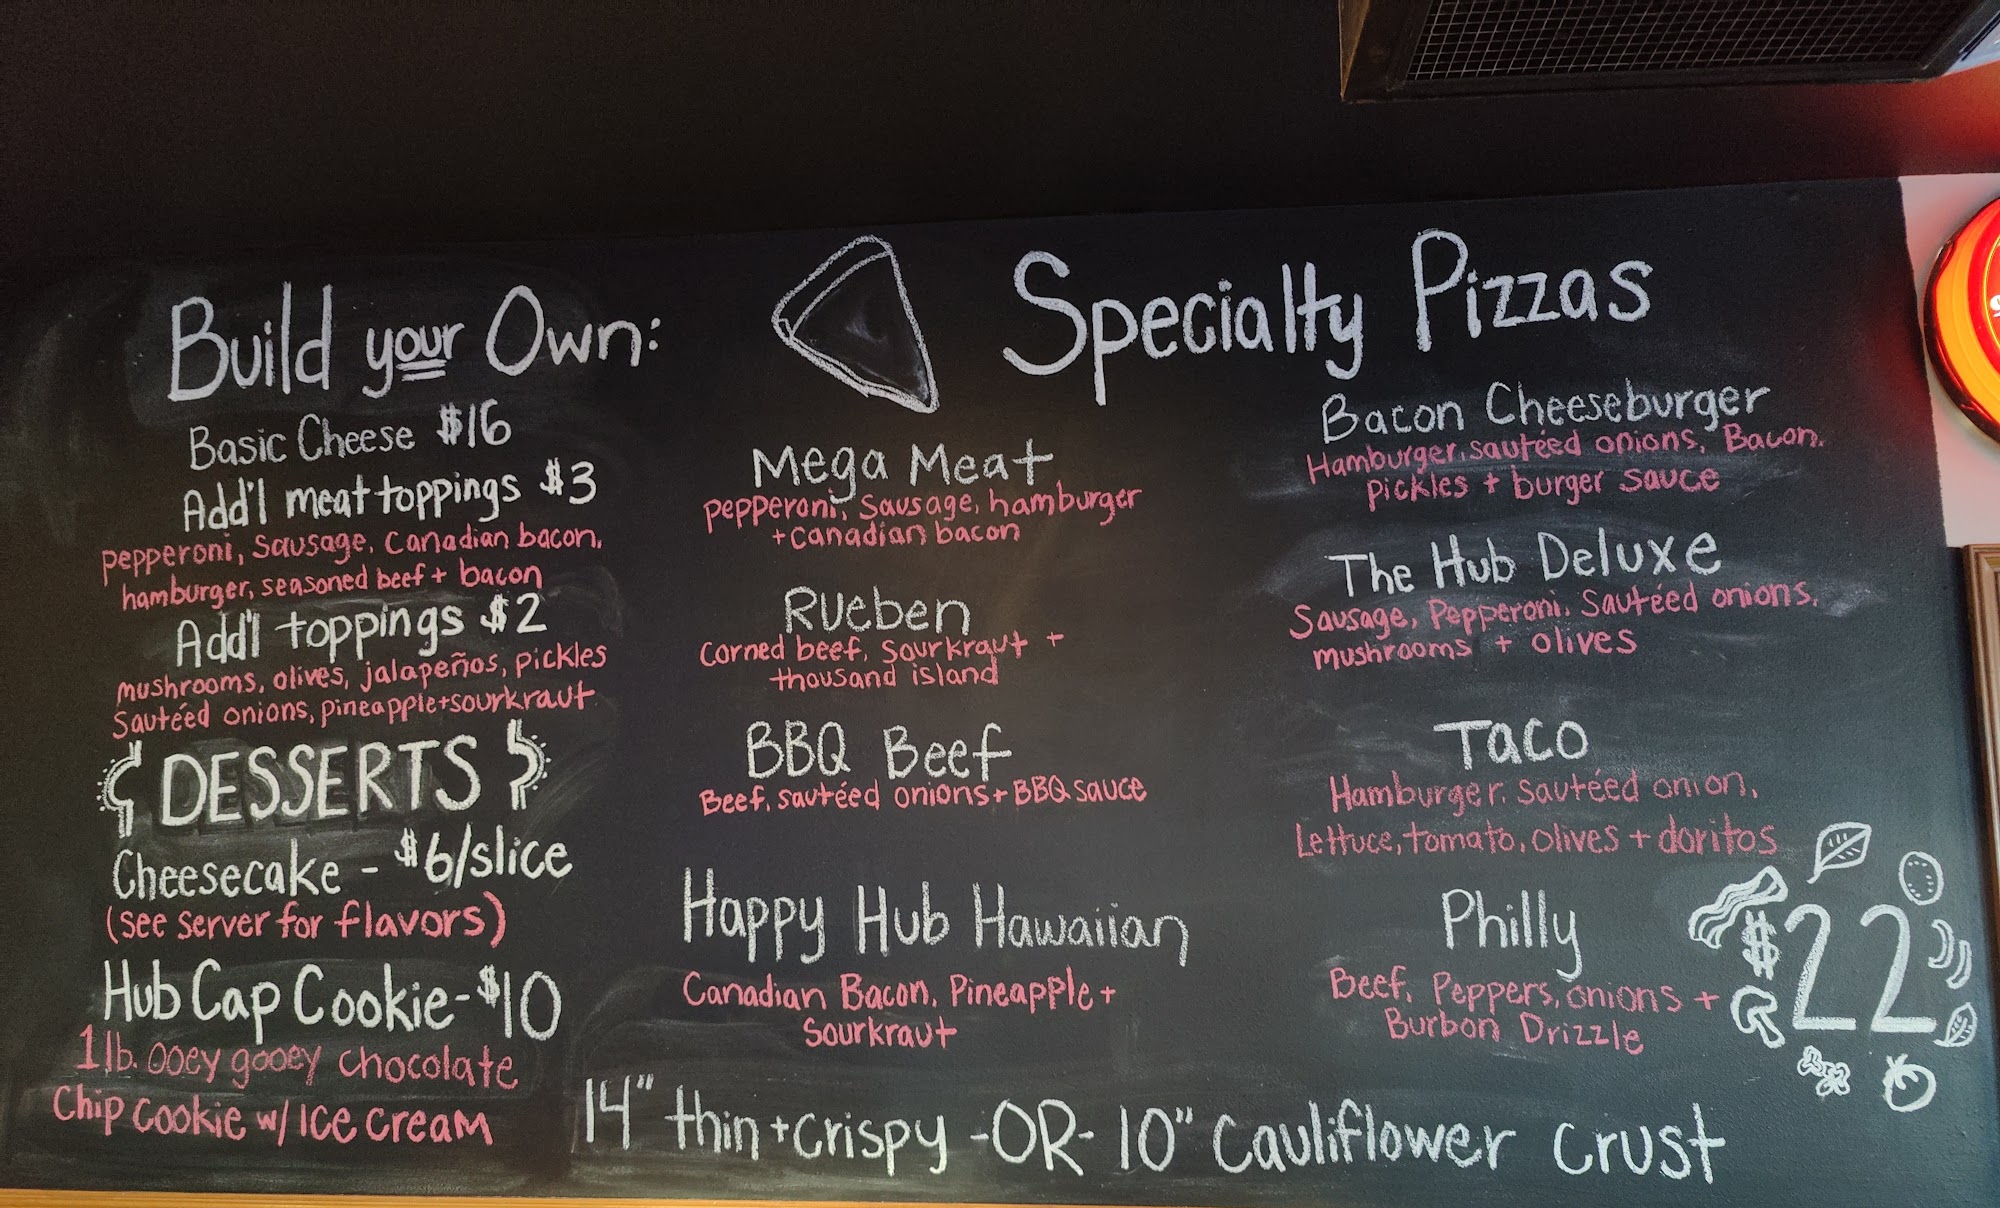 Build your Own:
Basic Cheese $16
Add'l meat toppings $3
pepperoni, sausage, Canadian bacon,
hamburger, seasoned beef + bacon
Add'l toppings $2
mushrooms, olives, jalapeños, pickles
Sautéed onions, pineapple + sourkraut
DESSERTS
Cheesecake - $6/slice
(see server for flavors)
Hub Cap Cookie - $10
1 lb. ooey gooey chocolate
Chip cookie w/ Ice cream
Specialty Pizzas
Mega Meat
pepperoni, sausage, hamburger
+ canadian bacon
Rueben
Corned beef, sourkraut +
thousand island
BBQ Beef
Beef, sautéed onions + BBQ sauce
Happy Hub Hawaiian
Canadian Bacon, Pineapple +
Sourkraut
Bacon Cheeseburger
Hamburger, sautéed onions, Bacon,
pickles + burger sauce
The Hub Deluxe
Sausage, Pepperoni, Sautéed onions,
mushrooms + olives
Taco
Hamburger, sautéed onion,
Lettuce, tomato, olives + doritos
Philly
Beef, Peppers, onions +
Burbon Drizzle
$22
14" thin + crispy -OR- 10" Cauliflower crust